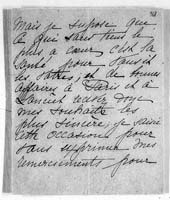 Mais je suppose que
ce qui vous tient le
plus à cœur c'est la
santé pour vous et
les vôtres, et de bonnes
affaires à Paris et à
mes souhaits les
plus sincères, je saisis
cette occasion pour
vous exprimer mes
remerciements pour